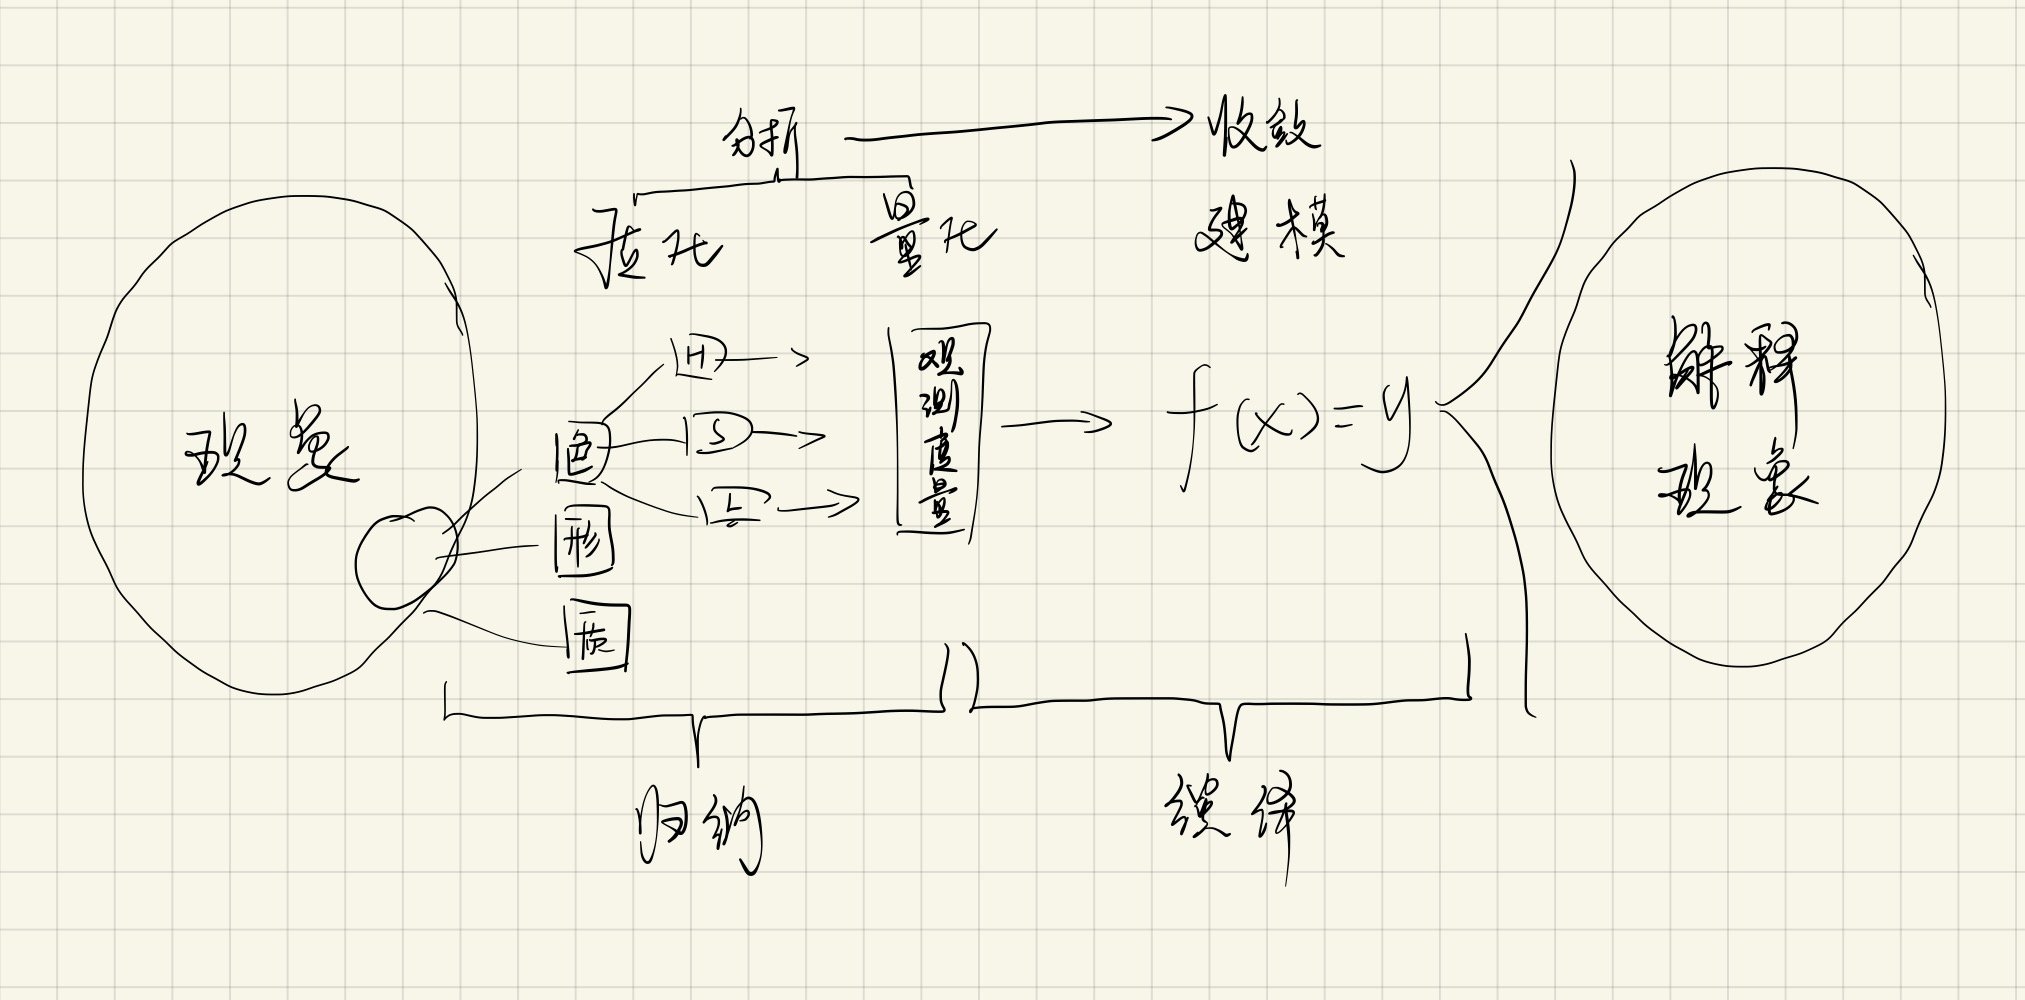 分析 → 收敛
量化
建模
现象
色
形
质
H
S
L
观测度量
f(x)=y
解释
现象
归纳
演绎